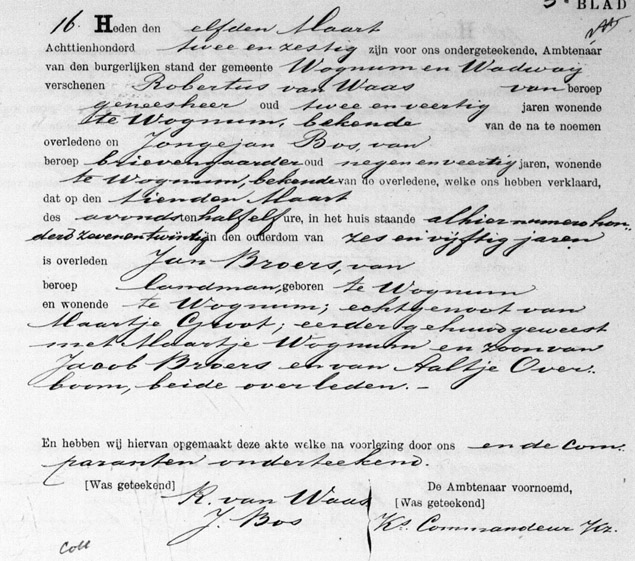 5e BLAD
16. Heden den elfden Maart
Achttienhonderd twee en zestig zijn voor ons ondergeteekende, Ambtenaar
van den burgerlijken stand der gemeente Wognum en Wadway
verschenen Robertus van Waas van beroep
geneesheer oud twee en veertig jaren wonende
te Wognum, bekende van de na te noemen
overledene en Jongejan Bos, van
beroep brievengaarder oud negen en veertig jaren, wonende
te Wognum, bekende van de overledene, welke ons hebben verklaard,
dat op den tienden Maart
des avonds ten half elf ure, in het huis staande alhier numero hon-
derd zeven en twintig in den ouderdom van zes en vijftig jaren
is overleden Jan Broers, van
beroep landman, geboren te Wognum
en wonende te Wognum; echtgenoot van
Maartje Groot; eerder gehuwd geweest
met Maartje Wognum en zoon van
Jacob Broers en van Aaltje Over-
boom, beide overleden. -
En hebben wij hiervan opgemaakt deze akte welke na voorlezing door ons en de com-
paranten onderteekend.
[Was geteekend] De Ambtenaar voornoemd,
R. van Waas [Was geteekend]
J. Bos Ks. Commandeur Kz.
Coll